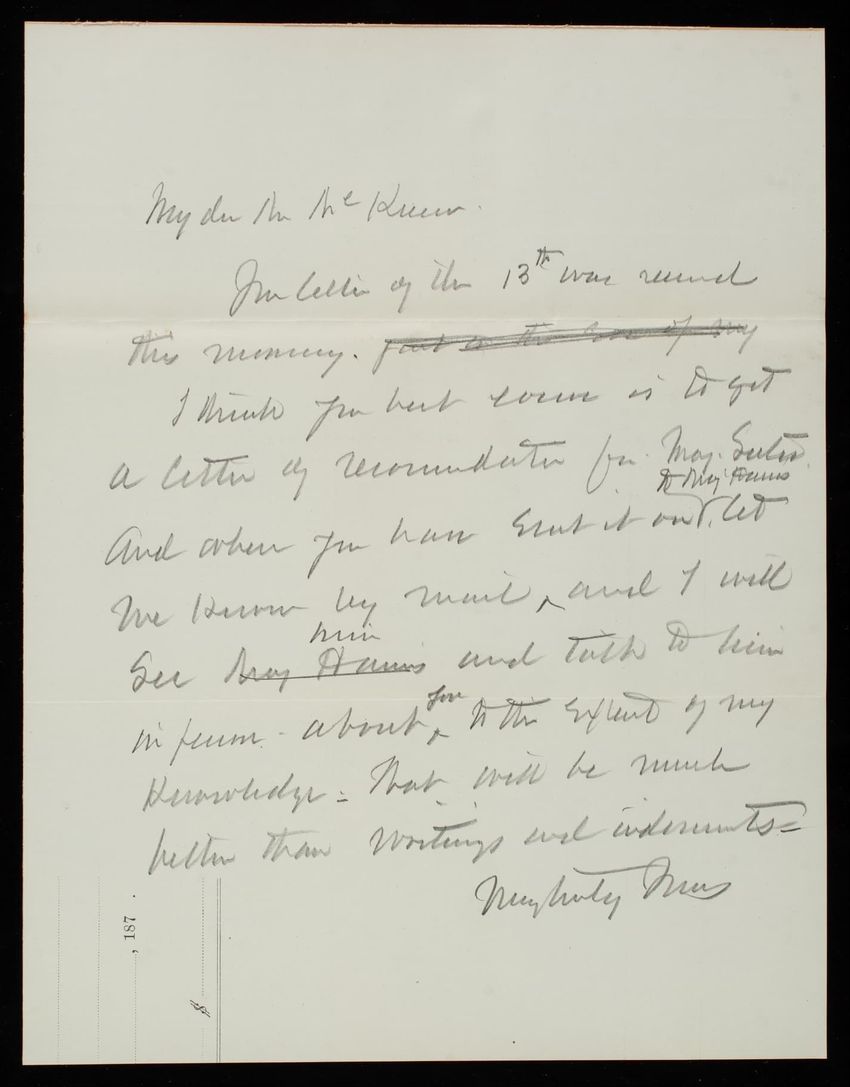 My dear Mr McKeen.
Your letter of the 13th was received
this morning.
I think your best course is to get
a letter of recommendation from Maj.
to Maj Harris
And when you have sent it on, let
me know by mail, and I will
him
See Maj Harris and talk to him
in person about
you
to the extent of my
Knowledge = That will be much
better than writings and indorsements =
Very truly Yours
, 187 .
$